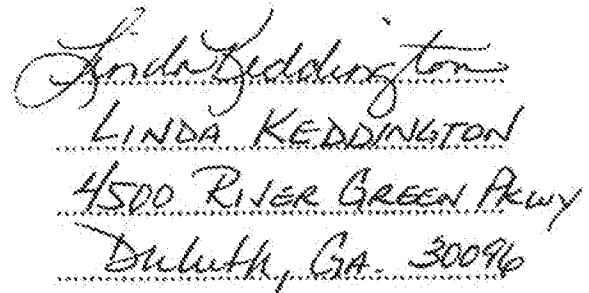 Linda Keddington
LINDA KEDDINGTON
4500 RIVER GREEN PKWY
Duluth, GA. 30096